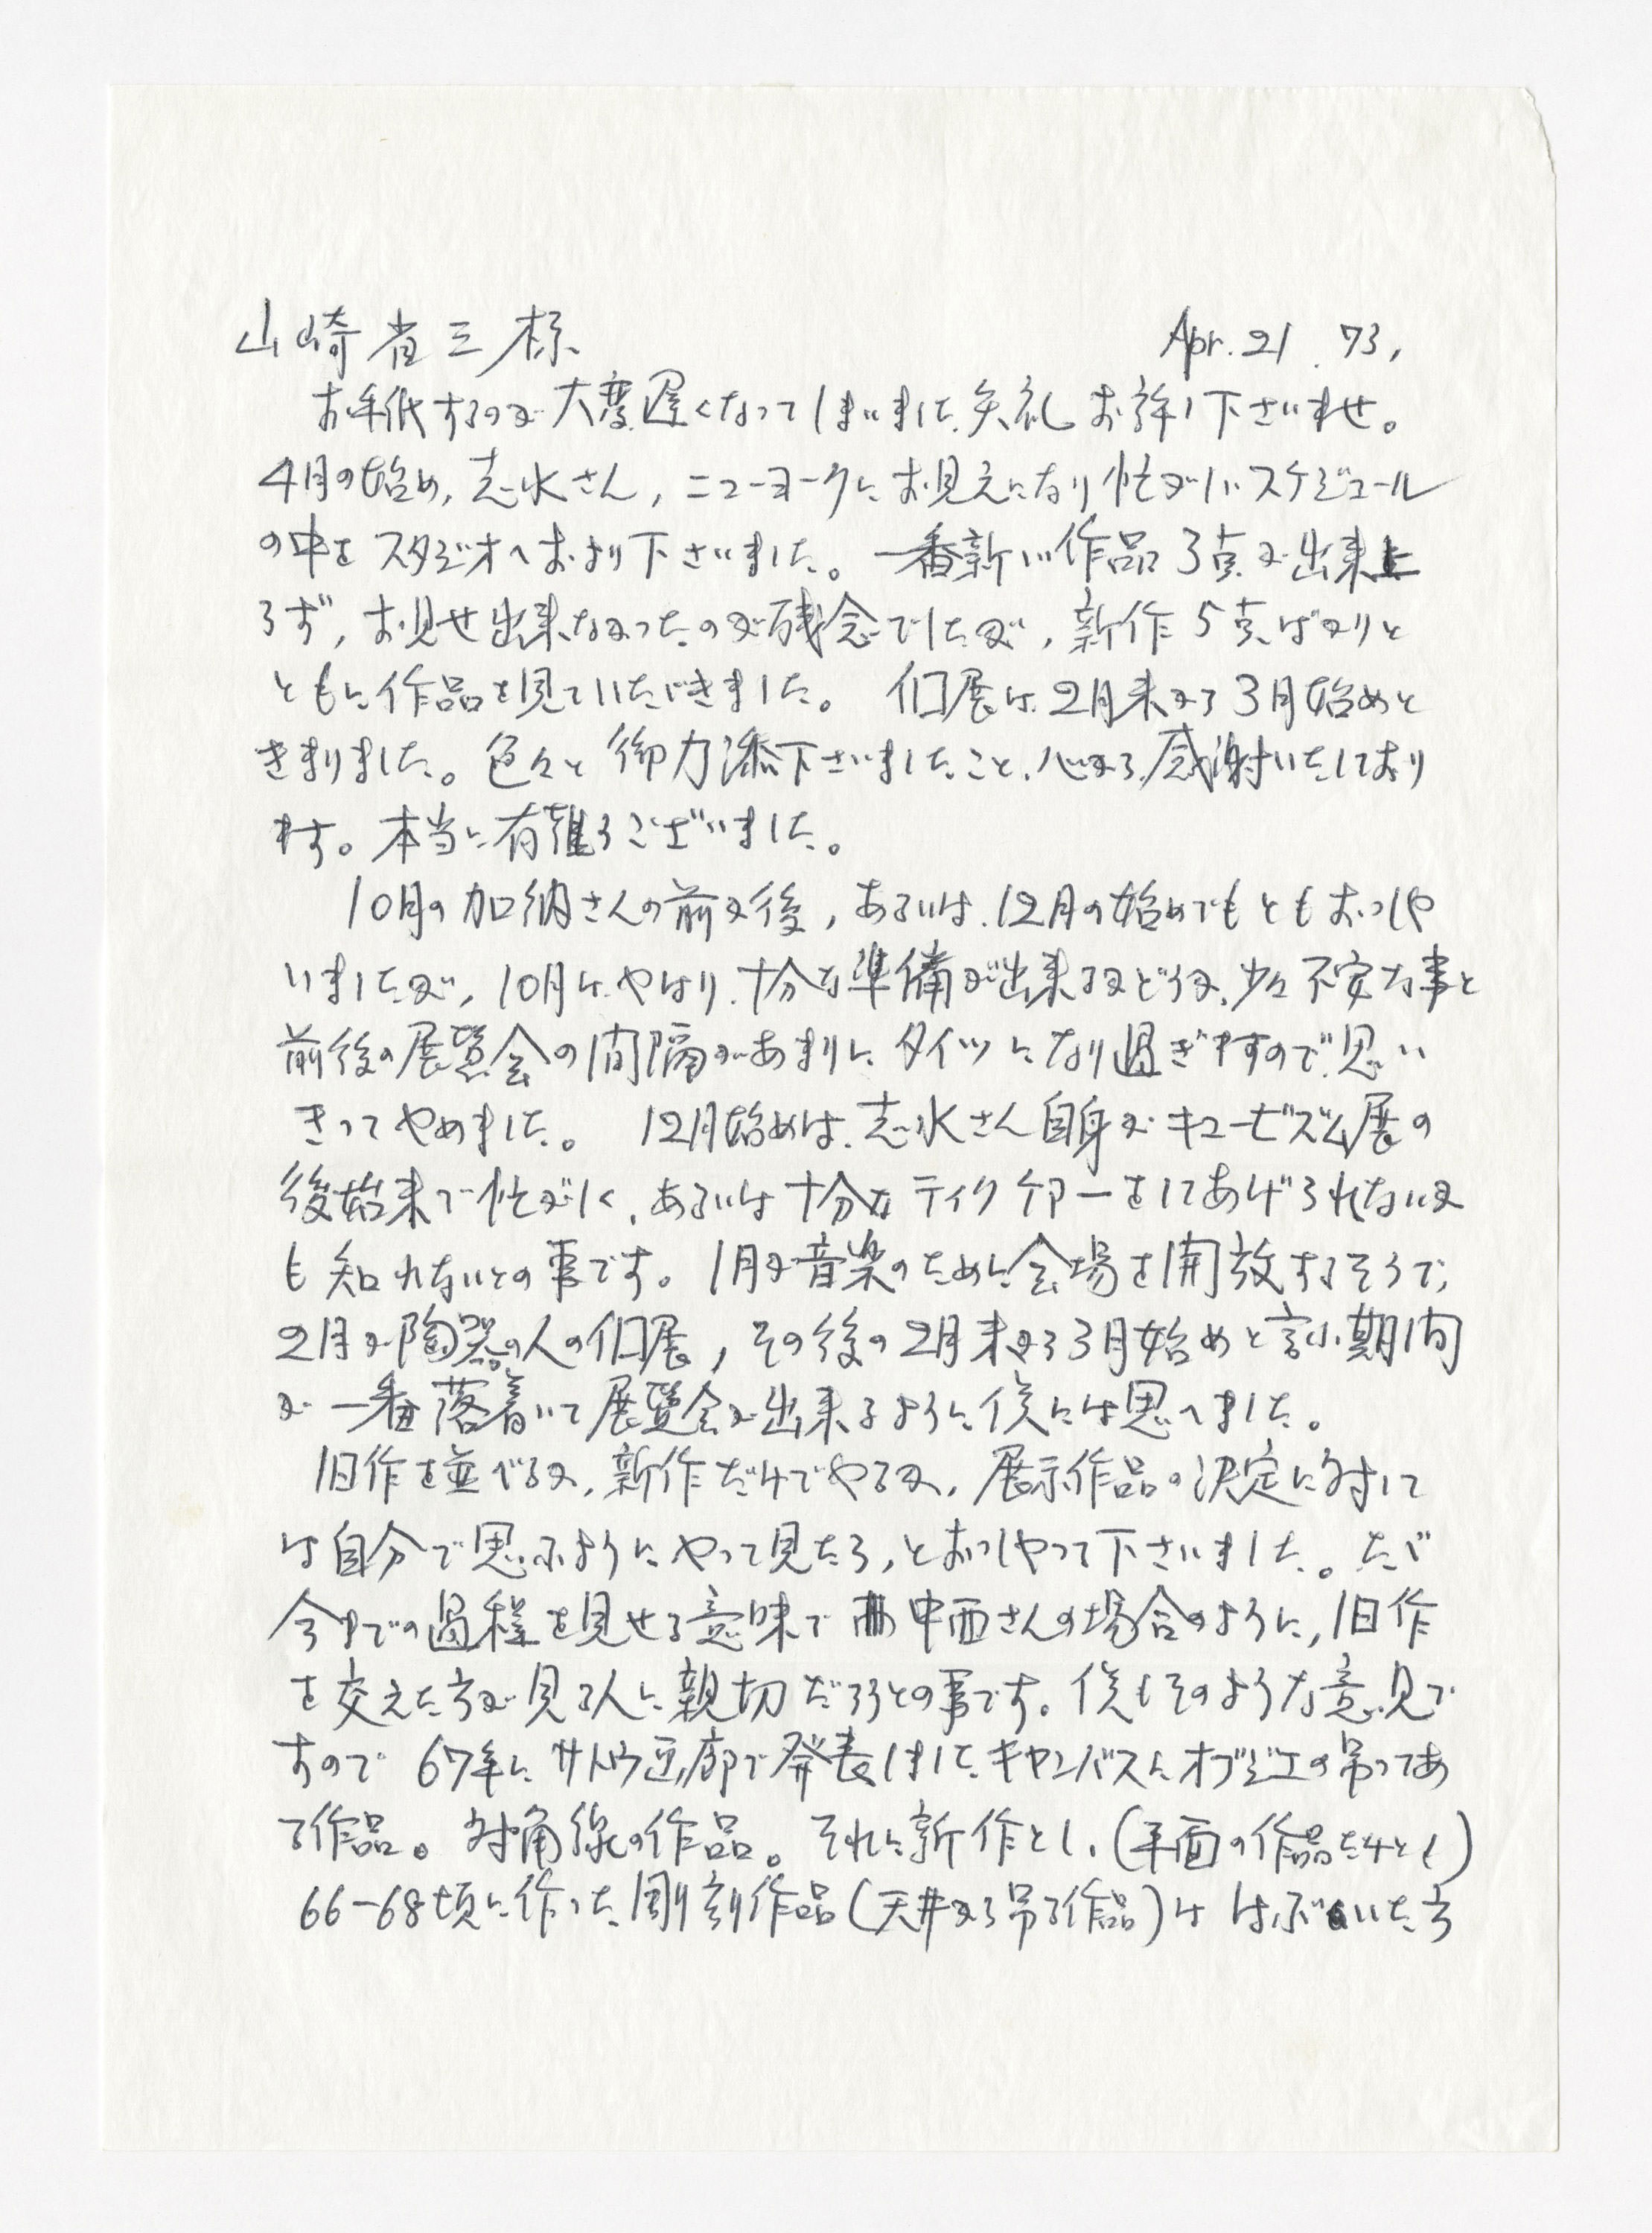 山崎省三様 Apr. 21. 73,
お手紙するのが大変遅くなってしまいました、失礼お許し下さいませ。
4月の始め、志水さん、ニューヨークにお見えになり忙がしいスケジュール
の中をスタジオへおより下さいました。一番新しい作品3点が出来上
らず、お見せ出来なかったのが残念でしたが、新作5点ばかりと
ともに作品を見ていただきました。個展は2月末から3月始めと
きまりました。色々と御力添下さいましたこと、心から感謝いたしており
ます。本当に有難うございました。
10月の加納さんの前か後、あるいは12月の始めでもともおっしゃ
いましたが、10月はやはり十分な準備が出来るかどうか、少々不安な事と
前後の展覧会の間隔があまりにタイツになり過ぎますので思い
きってやめました。12月始めは、志水さん自身がキュービズム展の
後始末で忙がしく、あるいは十分なテイクケアーをしてあげられないか
も知れないとの事です。1月が音楽のために会場を開放するそうで、
2月が陶器の人の個展、その後の2月末から3月始めと言ふ期間
が一番落着いて展覧会が出来るように僕には思へました。
旧作を並べるか、新作だけでやるか、展示作品の決定に対して
は自分で思ふようにやって見たら、とおっしゃって下さいました。たゞ
今までの過程を見せる意味で中西さんの場合のように、旧作
を交えた方が見る人に親切だろうとの事です。僕もそのような意見で
すので67年にサトウ画廊で発表しましたキャンバスにオブジェの吊ってあ
る作品。対角線の作品。それに新作とし、(平面の作品だけとし)
66-68頃に作った彫刻作品(天井から吊る作品)は はぶいた方